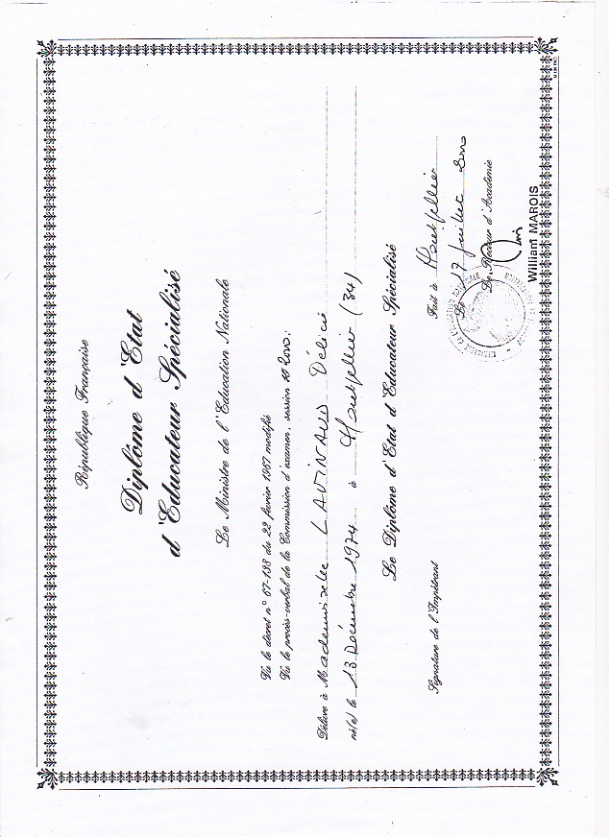 République Française
Diplôme d'Etat
d'Educateur Spécialisé
Le Ministre de l'Education Nationale
Vu le décret n° 67-138 du 22 février 1967 modifié
Vu le procès-verbal de la Commission d'examen, session 2000:
Délivre à Mademoiselle LAVINAUD Délice
né(e) le 13 Décembre 1974 à Montpellier (34)
Le Diplôme d'Etat d'Educateur Spécialisé
Fait à Montpellier
Le 17 Juillet 2000
Signature de l'Impétrant
Le Recteur d'Académie
William MAROIS